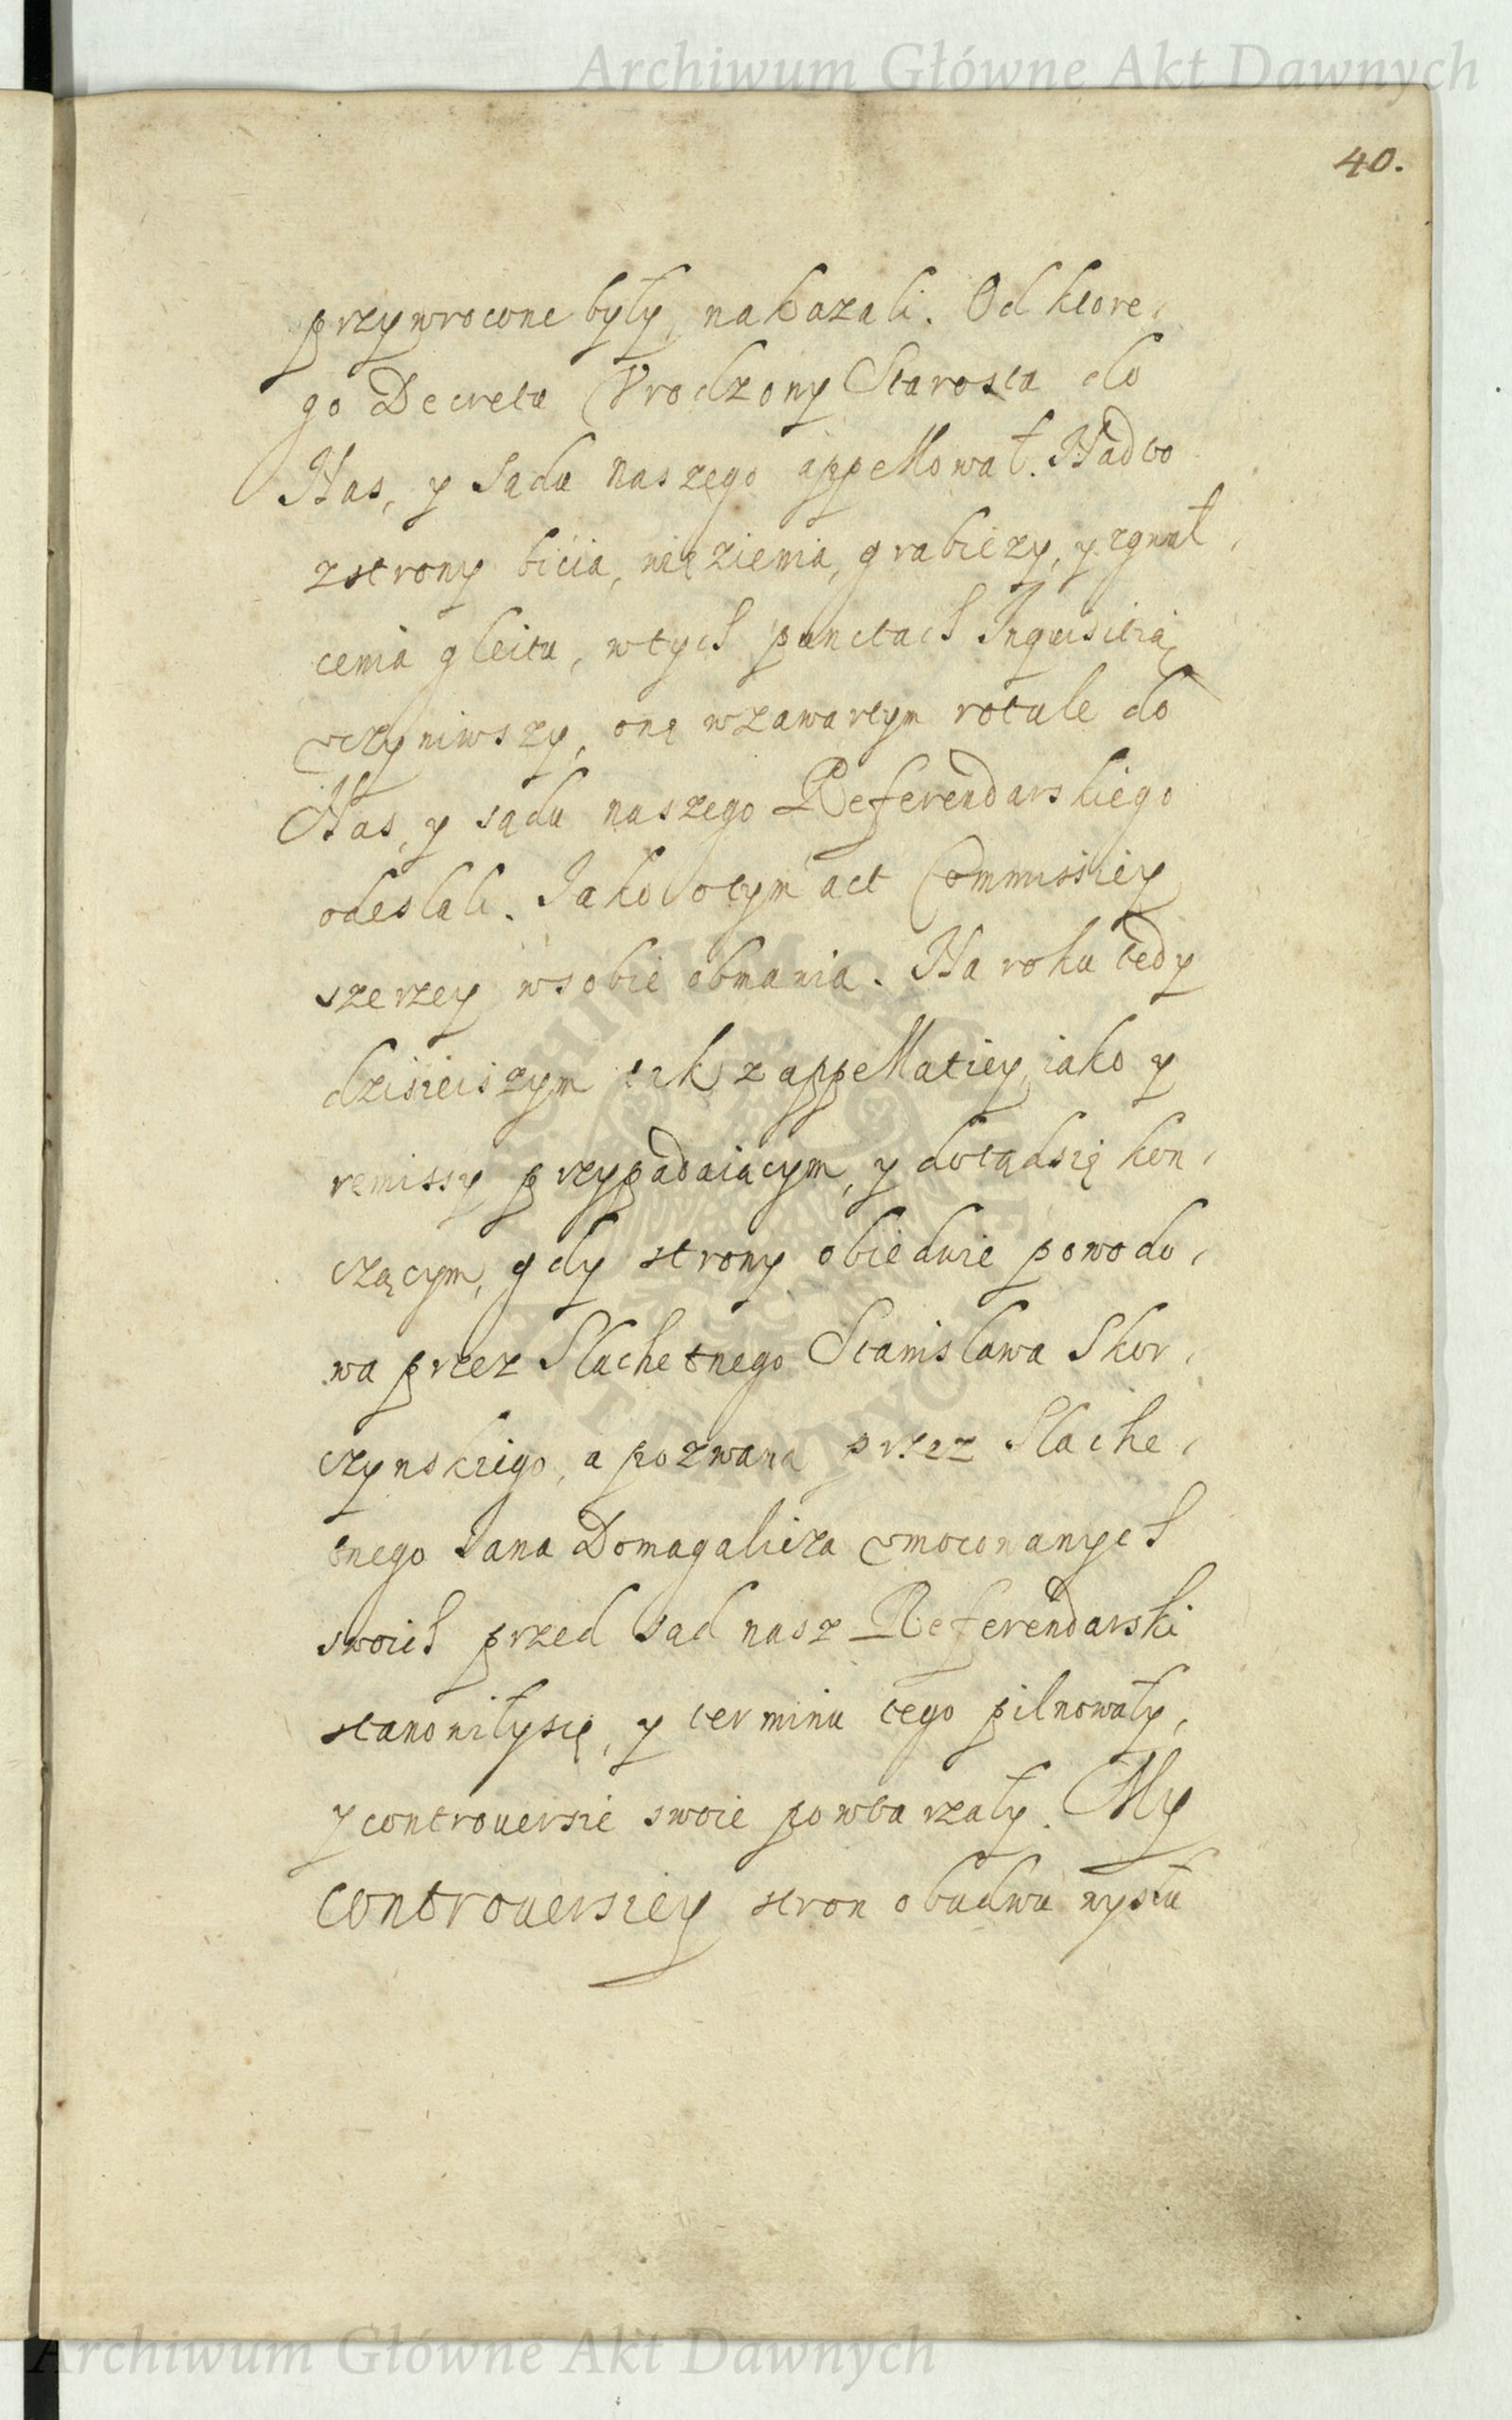 Archiwum Główne Akt Dawnych
40.
przywrocone były, nakazali. Od ktore,
go Decretu Vrodzony Starosta do
Nas, y Sądu naszego appellował. Nadto
zstrony bicia, więzienia, grabieży, y zgwał,
cenia gleitu, wtych punctach Inquisitią
vczyniwszy, onę wzawartym rotule do
Nas, y sądu naszego Referendarskiego
odesłali. Iako otym act Commissiey
szerzey wsobie obmawia. Na roku tedy
dzisieiszym tak z appellatiey, iako y
remissy przypadaiącym, y dotądsię kon,
czącym, gdy strony obiedwie powodo,
wa przez Slachetnego Stanisława Skor,
czynskiego, a pozwana przez Slache,
tnego Iana Domagalicza vmocowanych
swoich przed sąd nasz Referendarski
stanowiłysię, y terminu tego pilnowały,
y controuersie swoie powtarzały. My
controuersiey stron obudwu wysłu
Archiwum Główne Akt Dawnych